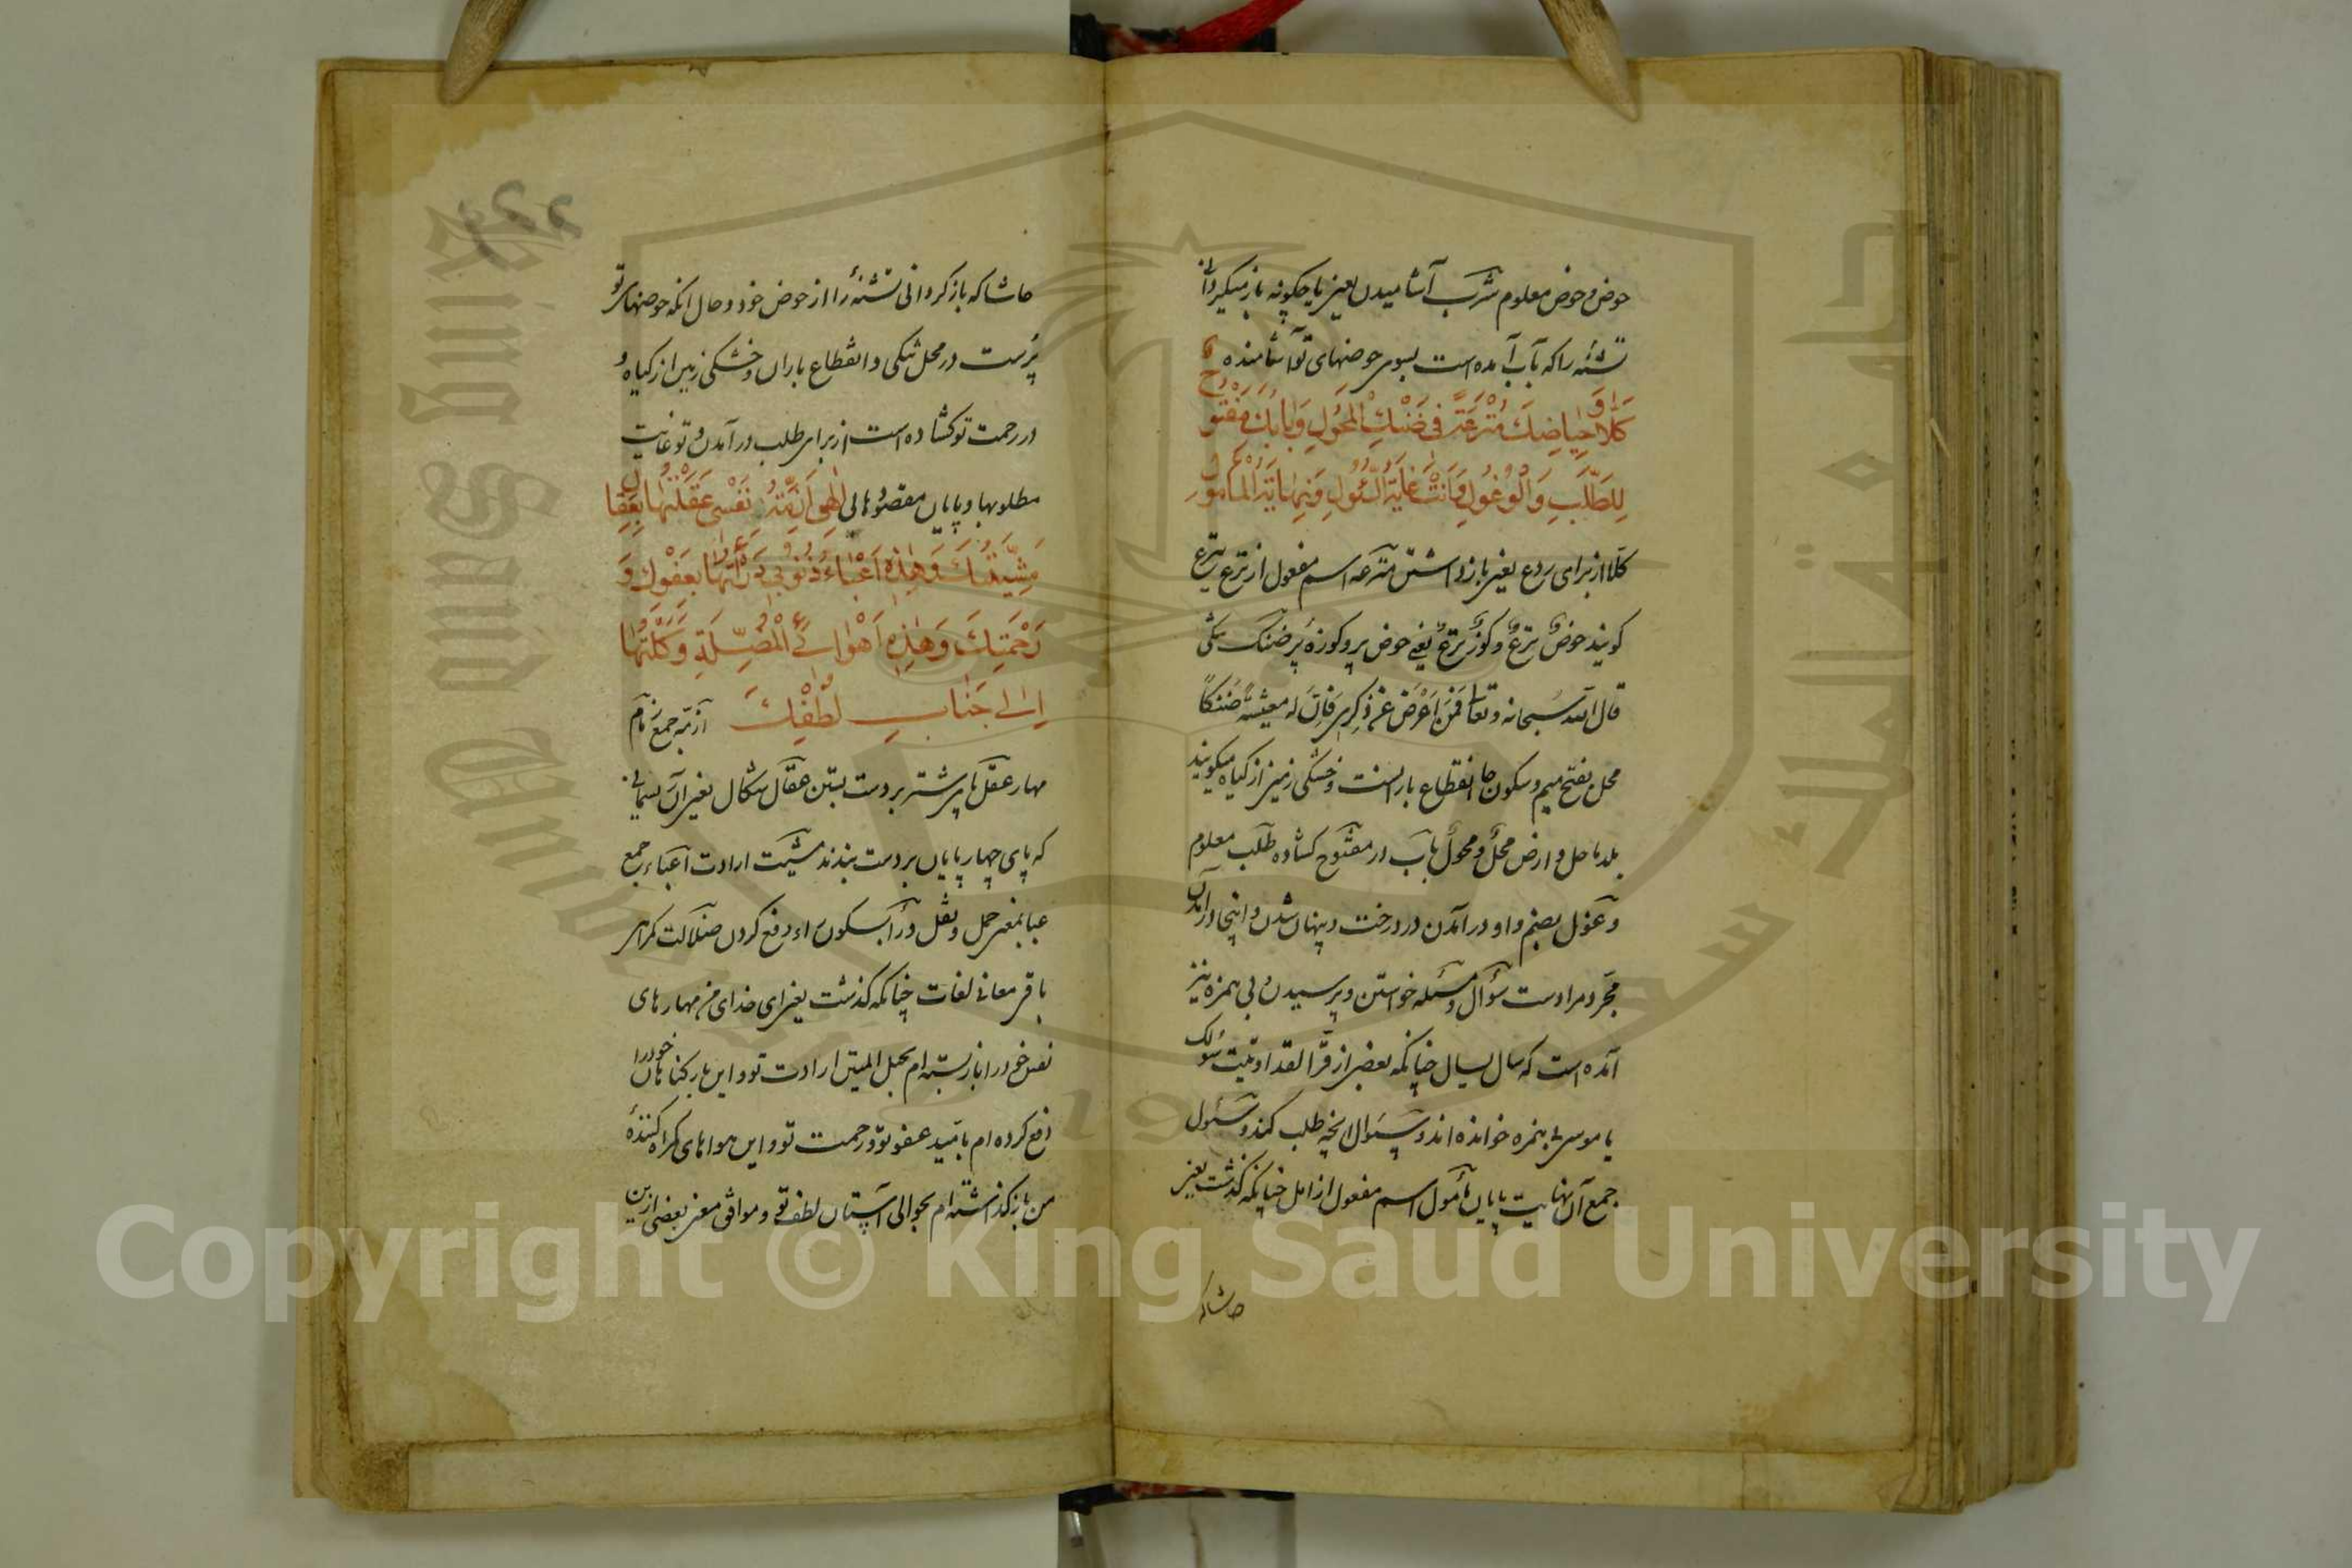 حوض و حوض معلوم شرب آشامیدن یعنی یا چکونه باز میکردانی
تشنه را که بآب آمده است بسوی حوضهای تو آشامنده
كَلَّا وَحِيَاضُكَ مُتْرَعَةٌ فِي ضَنْكِ الْمُحُولِ وَبَابُكَ مَفْتُوحٌ
لِلطَّلَبِ وَالْوُغُولِ وَأَنْتَ غَايَةُ السُّؤْلِ وَنِهَايَةُ الْمَأْمُولِ
کلّا از برای ردع یعنی باز داشتن مترعه اسم مفعول از ترع یترع
کویند حوضٌ ترعٌ و کوزٌ ترعٌ یعنی حوض پر و کوزهٔ پر ضنک تنکی
قال الله سبحانه و تعالی فمن اعرض عن ذکری فان له معیشة ضنکا
محل بفتح میم و سکون حا انقطاع بارانست و خشکی زمین از کیاه میکویند
بلد ماحل و ارض محل و محول باب در مفتوح کشاده طلب معلوم
وغول بضم واو در آمدن در درخت و پنهان شدن و اینجا در آمدن
مجرد مرادست سؤال و مسئله خواستن و پرسیدن و بی همزه نیز
آمده است که سال یسال چنانکه بعضی از قرا لقد اوتیت سولک
یا موسی بی همزه خوانده اند و سئوال آنچه طلب کنند و سئول
جمع آن نهایت پایان مأمول اسم مفعول از امل چنانکه کذشت یعنی
حاشا که
حاشا که باز کردانی تشنهٔ را از حوض خود و حال آنکه حوضهای تو
پُرست در محل تنکی و انقطاع باران و خشکی زمین از کیاه و
در رحمت تو کشاده است از برای طلب و در آمدن و تو غایت
مطلوبها و پایان مقصودهائی الهي أزمّة نفسي عقلتها بعقال
مَشِيَّتِكَ وَهٰذِهِ أَعْبَاءُ ذُنُوبِي دَرَأْتُهَا بِعَفْوِكَ وَ
رَحْمَتِكَ وَهٰذِهِ أَهْوَائِي الْمُضِلَّةِ وَكَلْتُهَا
إِلَى جَنَابِ لُطْفِكَ ازمّه جمع زمام
مهار عقل پای شتر بر دست بستن عقال شکال یعنی آن ریسمانی
که پای چهار پایان بر دست بندند مشیت ارادت اعباء جمع
عبا بمعنی حمل و ثقل درأ بسکون راء دفع کردن ضلالت کمراهی
باقی معانی لغات چنانکه کذشت یعنی ای خدای من مهارهای
نفس خود را باز بسته ام بحبل المتین ارادت تو و این بار کناهان خود را
دفع کرده ام بامید عفو تو و رحمت تو و این هواهای کمراه کنندهٔ
من باز کذاشته ام بحوالی آستان لطف تو و موافق معنی بعضی ازین